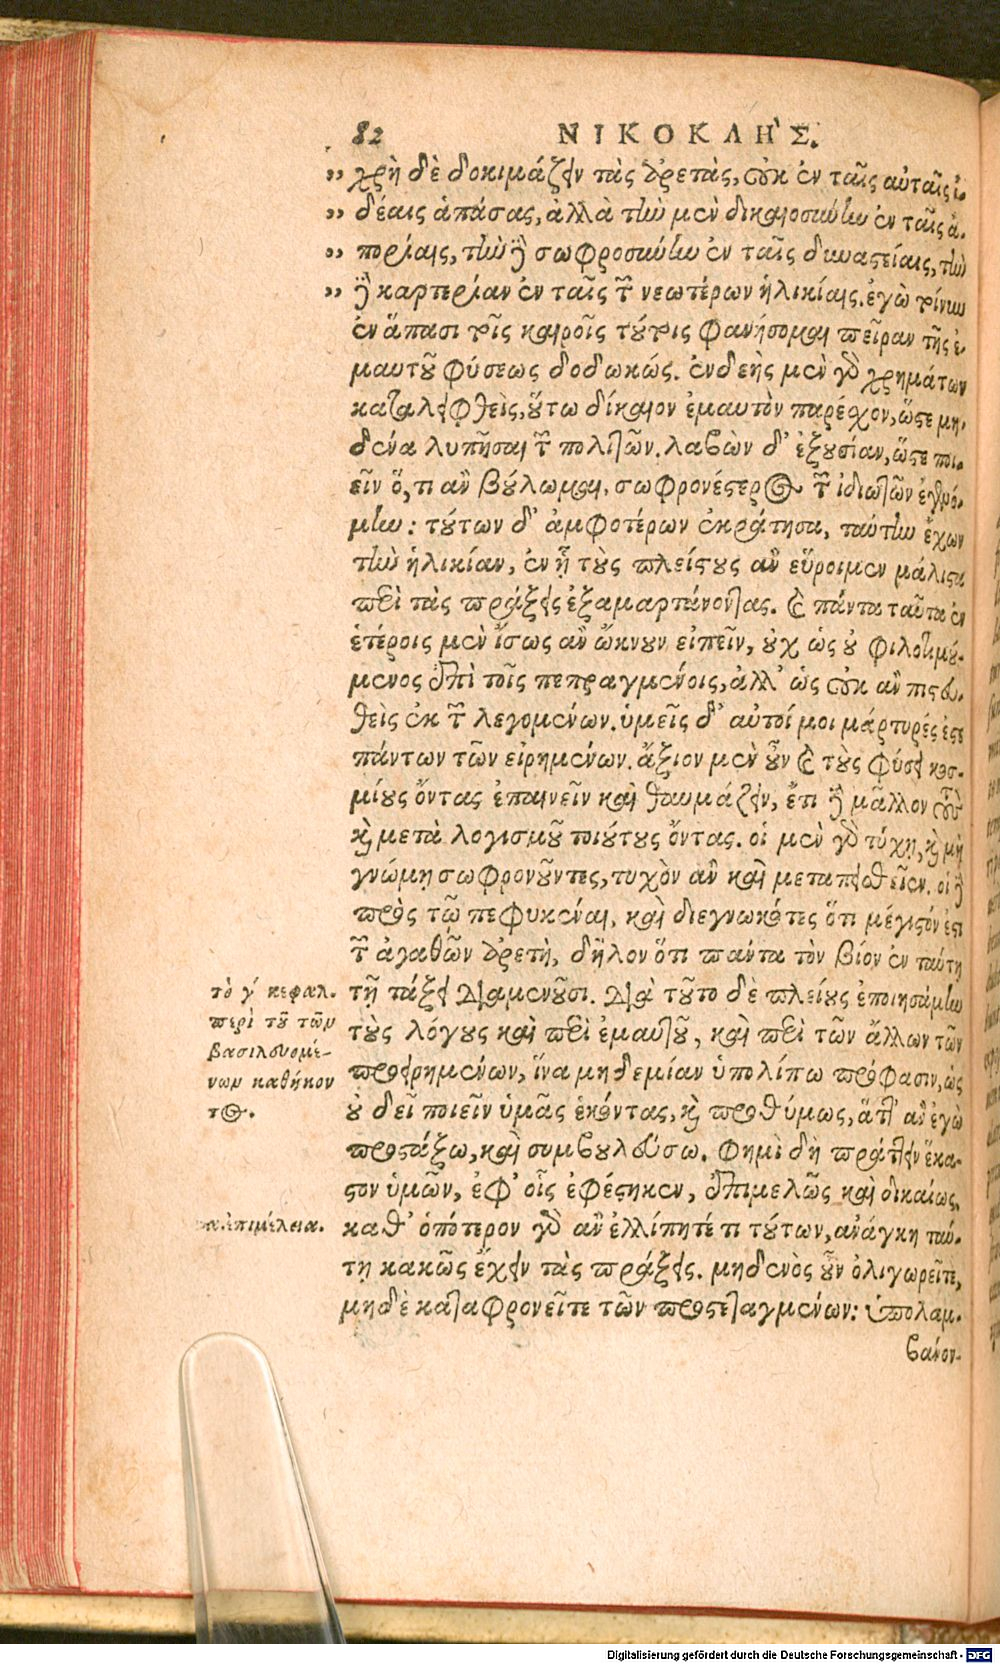 82 ΝΙΚΟΚΛΗΣ.
" χρὴ δὲ δοκιμάζειν τὰς ἀρετὰς, οὐκ ἐν ταῖς αὐταῖς ἰ-
" δέαις ἁπάσας, ἀλλὰ τὴν μὲν δικαιοσύνην ἐν ταῖς ἀ-
" πορίαις, τὴν δὲ σωφροσύνην ἐν ταῖς δυναστείαις, τὴν
" δὲ καρτερίαν ἐν ταῖς τῶν νεωτέρων ἡλικίαις. ἐγὼ τοίνυν
ἐν ἅπασι τοῖς καιροῖς τούτοις φανήσομαι πεῖραν τῆς ἐ-
μαυτοῦ φύσεως δοδωκώς. ἐνδεὴς μὲν γὰρ χρημάτων
καταλειφθεὶς, οὕτω δίκαιον ἐμαυτὸν παρέχον, ὥστε μη-
δένα λυπῆσαι τῶν πολιτῶν. λαβὼν δ' ἐξουσίαν, ὥστε ποι-
εῖν ὅ, τι ἂν βούλωμαι, σωφρονέστερος τῶν ἰδιωτῶν ἐγενό-
μην: τούτων δ' ἀμφοτέρων ἐκράτησα, ταύτην ἔχων
τὴν ἡλικίαν, ἐν ᾗ τοὺς πλείστους ἂν εὕροιμεν μάλιστα
περὶ τὰς πράξεις ἐξαμαρτάνοντας. καὶ πάντα ταῦτα ἐν
ἑτέροις μὲν ἴσως ἂν ὤκνουν εἰπεῖν, οὐχ ὡς οὐ φιλοτιμού-
μενος ἐπὶ τοῖς πεπραγμένοις, ἀλλ' ὡς οὐκ ἂν πιστευ-
θεὶς ἐκ τῶν λεγομένων. ὑμεῖς δ' αὐτοί μοι μάρτυρές ἐστε
πάντων τῶν εἰρημένων. ἄξιον μὲν οὖν καὶ τοὺς φύσει κοσ-
μίους ὄντας ἐπαινεῖν καὶ θαυμάζειν, ἔτι δὲ μᾶλλον τοὺς
καὶ μετὰ λογισμοῦ τοιούτους ὄντας. οἱ μὲν γὰρ τύχῃ, καὶ μὴ
γνώμῃ σωφρονοῦντες, τυχὸν ἂν καὶ μεταπεισθεῖεν. οἱ δὲ
πρὸς τῷ πεφυκέναι, καὶ διεγνωκότες ὅτι μέγιστόν ἐστι
τῶν ἀγαθῶν ἀρετὴ, δῆλον ὅτι πάντα τὸν βίον ἐν ταύτῃ
τὸ γ' κεφάλ. τῇ τάξει διαμενοῦσι. διὰ τοῦτο δὲ πλείους ἐποιησάμην
περὶ τοῦ τῶν τοὺς λόγους καὶ περὶ ἐμαυτοῦ, καὶ περὶ τῶν ἄλλων τῶν
βασιλευομέ-
νων καθήκον προειρημένων, ἵνα μηδεμίαν ὑπολίπω πρόφασιν, ὡς
τος. οὐ δεῖ ποιεῖν ὑμᾶς ἑκόντας, καὶ προθύμως, ἅττ' ἂν ἐγὼ
προστάξω, καὶ συμβουλεύσω. Φημὶ δὴ πράττειν ἕκα-
στον ὑμῶν, ἐφ' οἷς ἐφέστηκεν, ἐπιμελῶς καὶ δικαίως.
ἐπιμέλεια. καθ' ὁπότερον γὰρ ἂν ἐλλίπητέ τι τούτων, ἀνάγκη ταύ-
τῃ κακῶς ἔχειν τὰς πράξεις. μηδενὸς οὖν ὀλιγωρεῖτε,
μηδὲ καταφρονεῖτε τῶν προστεταγμένων: ὑπολαμ-
βάνον-
Digitalisierung gefördert durch die Deutsche Forschungsgemeinschaft - DFG